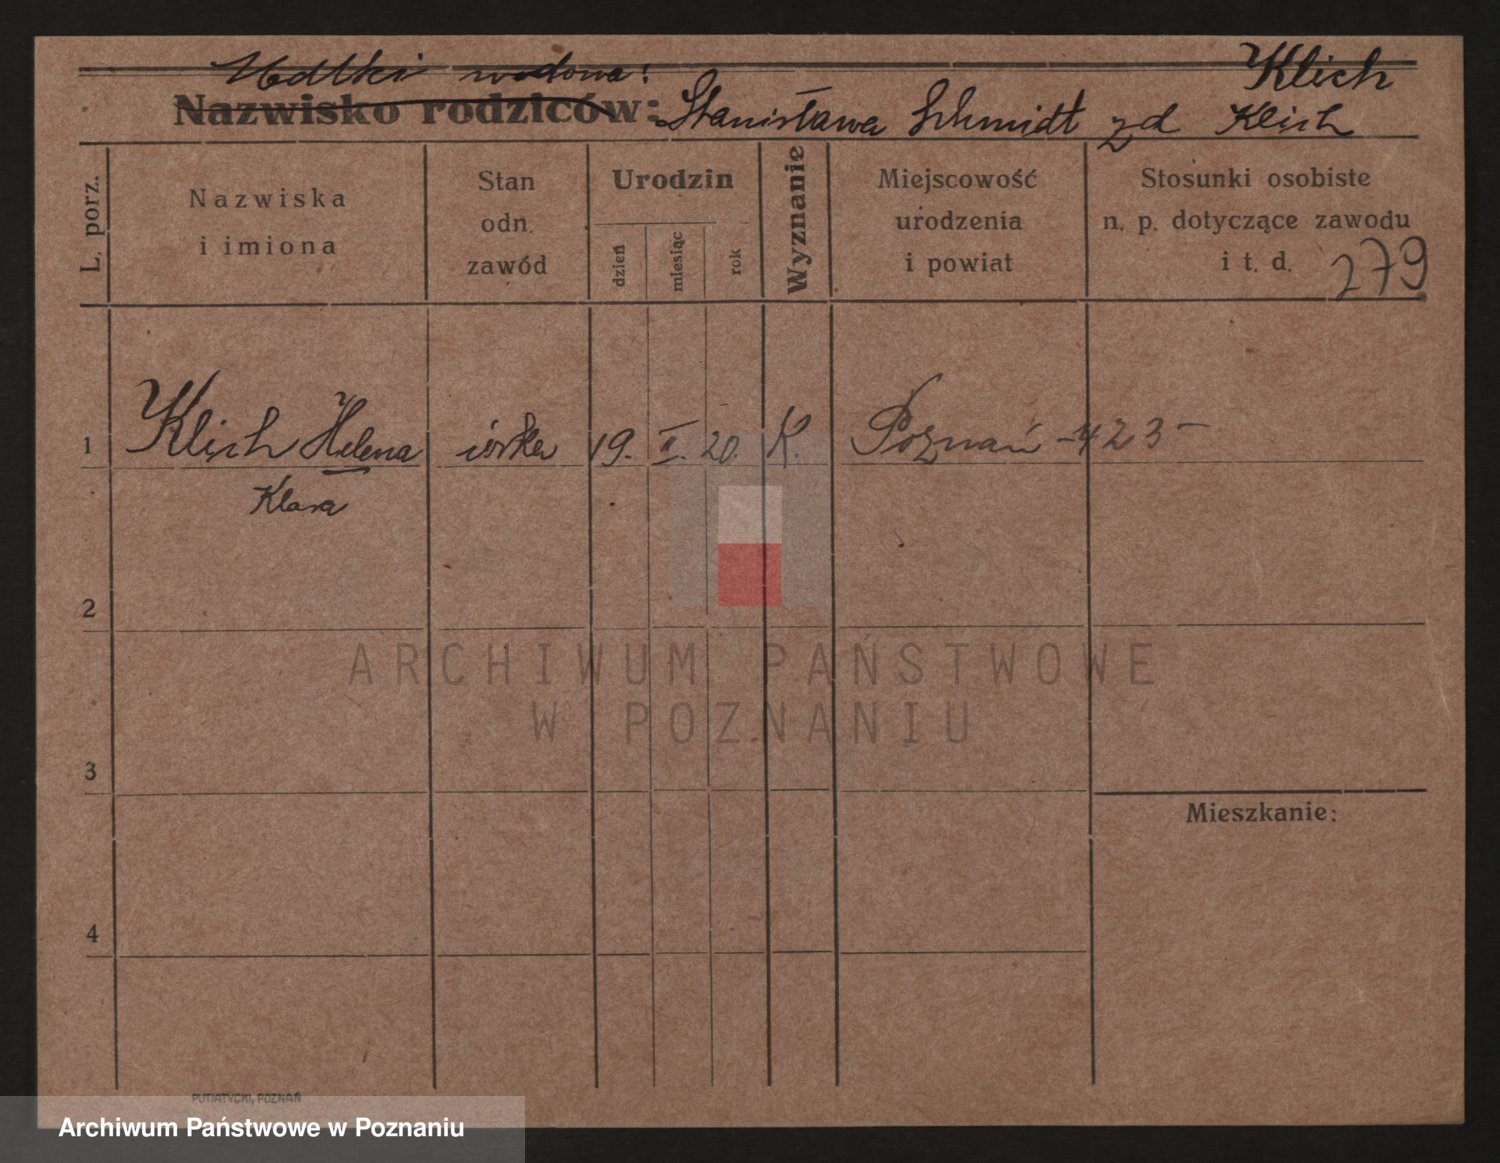 Klich
Matki wdowa:
Nazwisko rodziców: Stanisława Schmidt zd Klich
L. porz.
Nazwiska
i imiona
Stan
odn.
zawód
Urodzin
dzień
miesiąc
rok
Wyznanie
Miejscowość
urodzenia
i powiat
Stosunki osobiste
n. p. dotyczące zawodu
i t. d.
279
1 Klich Helena córka 19. II. 20. K. Poznań - 423 -
Klara
2
ARCHIWUM PAŃSTWOWE
W POZNANIU
3
Mieszkanie:
4
PUTIATYCKI, POZNAŃ
Archiwum Państwowe w Poznaniu